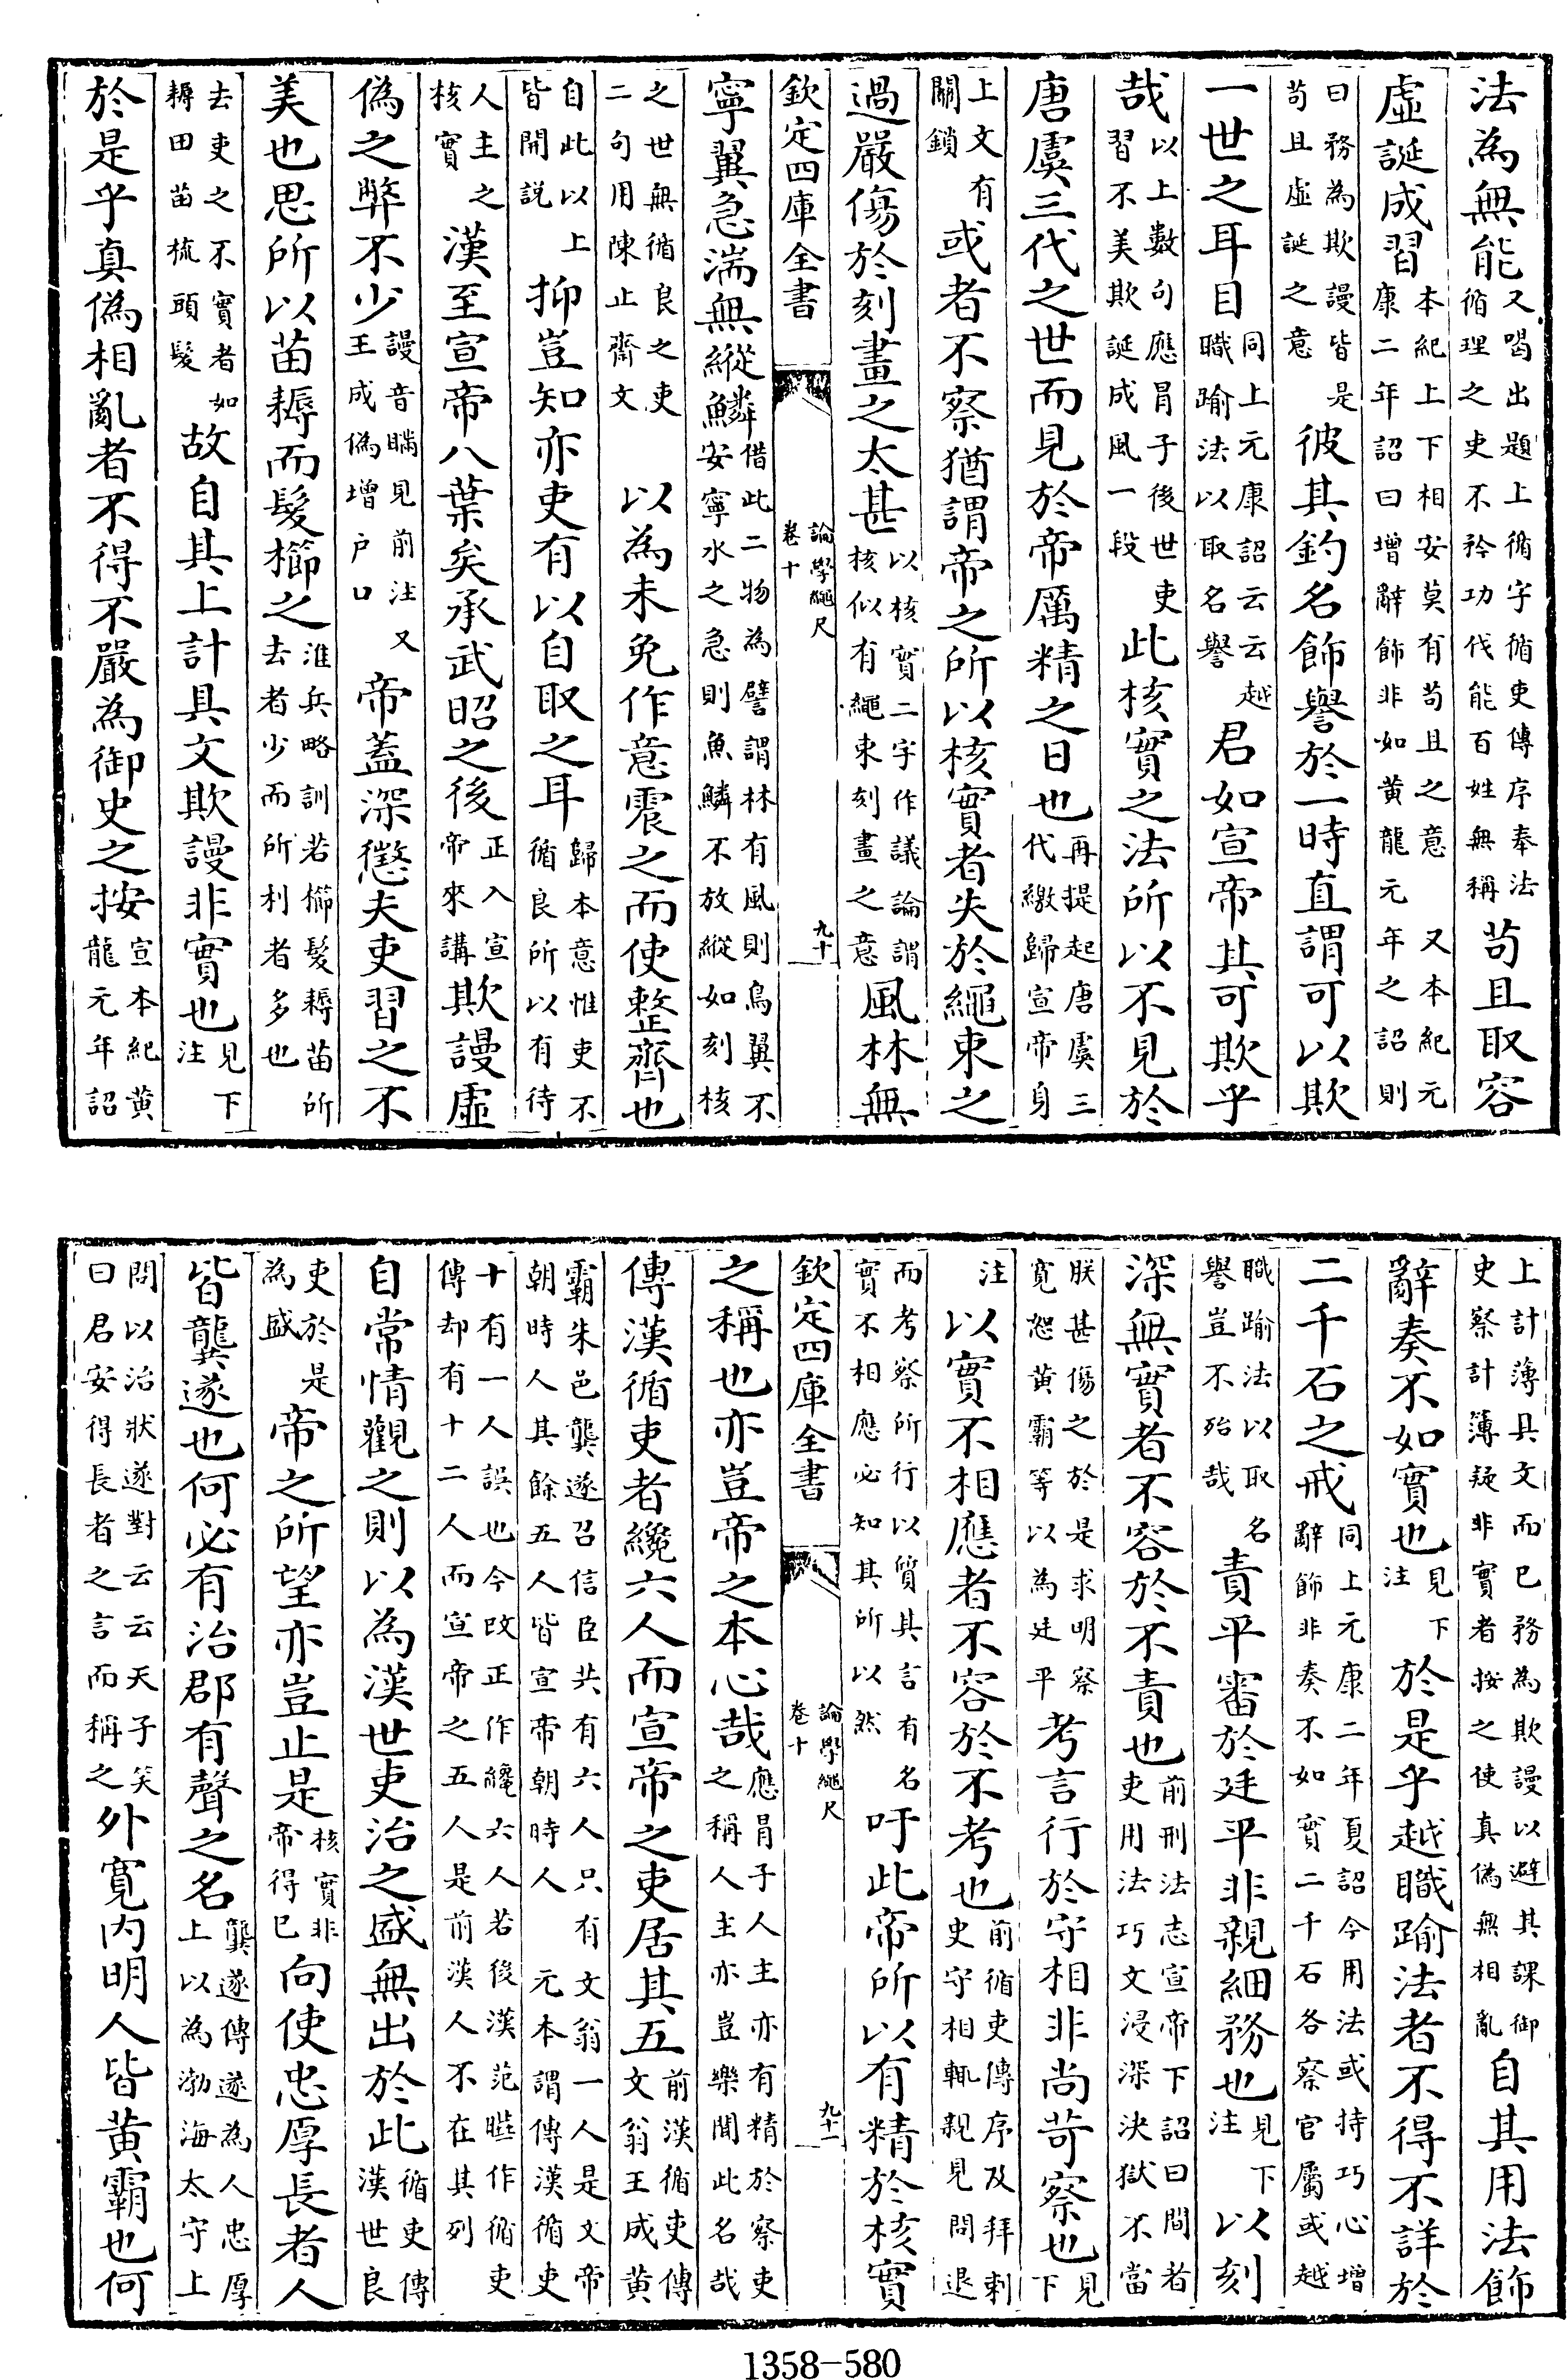 法為無能又喝出題上循字循吏傳序奉法循理之吏不矜功伐能百姓無稱苟且取容
虛誕成習本紀上下相安莫有苟且之意又本紀元康二年詔曰增辭飾非如黄龍元年之詔則
曰務為欺謾皆是苟且虛誕之意彼其釣名飾譽於一時直謂可以欺
一世之耳目同上元康詔云云越職踰法以取名譽君如宣帝其可欺乎
哉以上數句應冐子後世吏習不美欺誕成風一段此核實之法所以不見於
唐虞三代之世而見於帝厲精之日也再提起唐虞三代繳歸宣帝身
上文有關鎖或者不察猶謂帝之所以核實者失於繩束之
過嚴傷於刻畫之太甚以核實二字作議論謂核似有繩束刻畫之意風林無
欽定四庫全書
論學繩尺
卷十
九十
寧翼急湍無縱鱗借此二物為譬謂林有風則鳥翼不安寧水之急則魚鱗不放縱如刻核
之世無循良之吏二句用陳止齋文以為未免作意震之而使整齊也
自此以上皆開説抑豈知亦吏有以自取之耳歸本意惟吏不循良所以有待
人主之核實漢至宣帝八葉矣承武昭之後正入宣帝來講欺謾虛
偽之弊不少謾音瞞見前注又王成偽增户口帝蓋深懲夫吏習之不
美也思所以苗耨而髮櫛之淮兵略訓若櫛髮耨苗所去者少而所利者多也
去吏之不實者如耨田苗梳頭髮故自其上計具文欺謾非實也見下注
於是乎真偽相亂者不得不嚴為御史之按宣本紀黄龍元年詔
上計薄具文而已務為欺謾以避其課御史察計簿疑非實者按之使真偽無相亂自其用法飾
辭奏不如實也見下注於是乎越職踰法者不得不詳於
二千石之戒同上元康二年夏詔今用法或持巧心增辭飾非奏不如實二千石各察官屬或越
職踰法以取名譽豈不殆哉責平審於廷平非親細務也見下注以刻
深無實者不容於不責也前刑法志宣帝下詔曰間者吏用法巧文浸深決獄不當
朕甚傷之於是求明察寛恕黄霸等以為廷平考言行於守相非尚苛察也見下
注以實不相應者不容於不考也前循吏傳序及拜刺史守相輒親見問退
而考察所行以質其言有名實不相應必知其所以然吁此帝所以有精於核實
欽定四庫全書
論學繩尺
卷十
九十一
之稱也亦豈帝之本心哉應冐子人主亦有精於察吏之稱人主亦豈樂聞此名哉
傳漢循吏者纔六人而宣帝之吏居其五前漢循吏傳文翁王成黄
霸朱邑龔遂召信臣共有六人只有文翁一人是文帝朝時人其餘五人皆宣帝朝時人元本謂傳漢循吏
十有一人誤也今改正作纔六人若後漢范曄作循吏傳却有十二人而宣帝之五人是前漢人不在其列
自常情觀之則以為漢世吏治之盛無出於此循吏傳漢世良
吏於是為盛帝之所望亦豈止是核實非帝得已向使忠厚長者人
皆龔遂也何必有治郡有聲之名龔遂傳遂為人忠厚上以為渤海太守上
問以治狀遂對云云天子笑曰君安得長者之言而稱之外寛内明人皆黄霸也何
1358-580